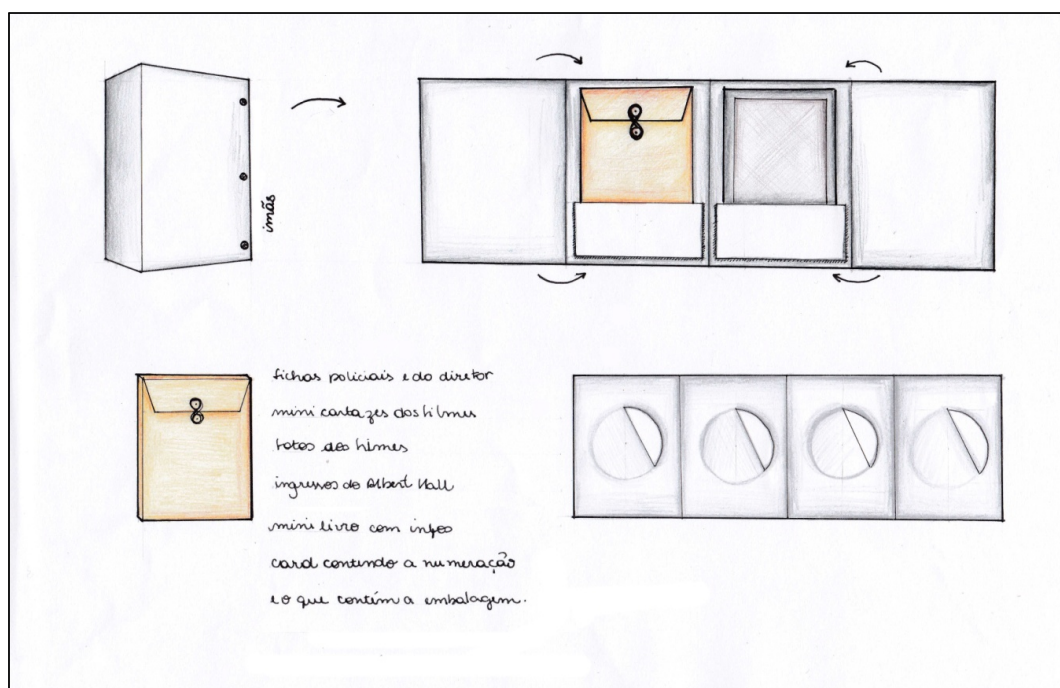 imãs
fichas policiais e do diretor
mini cartazes dos filmes
fotos dos filmes
ingressos do Albert Hall
mini livro com infos
card contendo a numeração
e o que contém a embalagem.